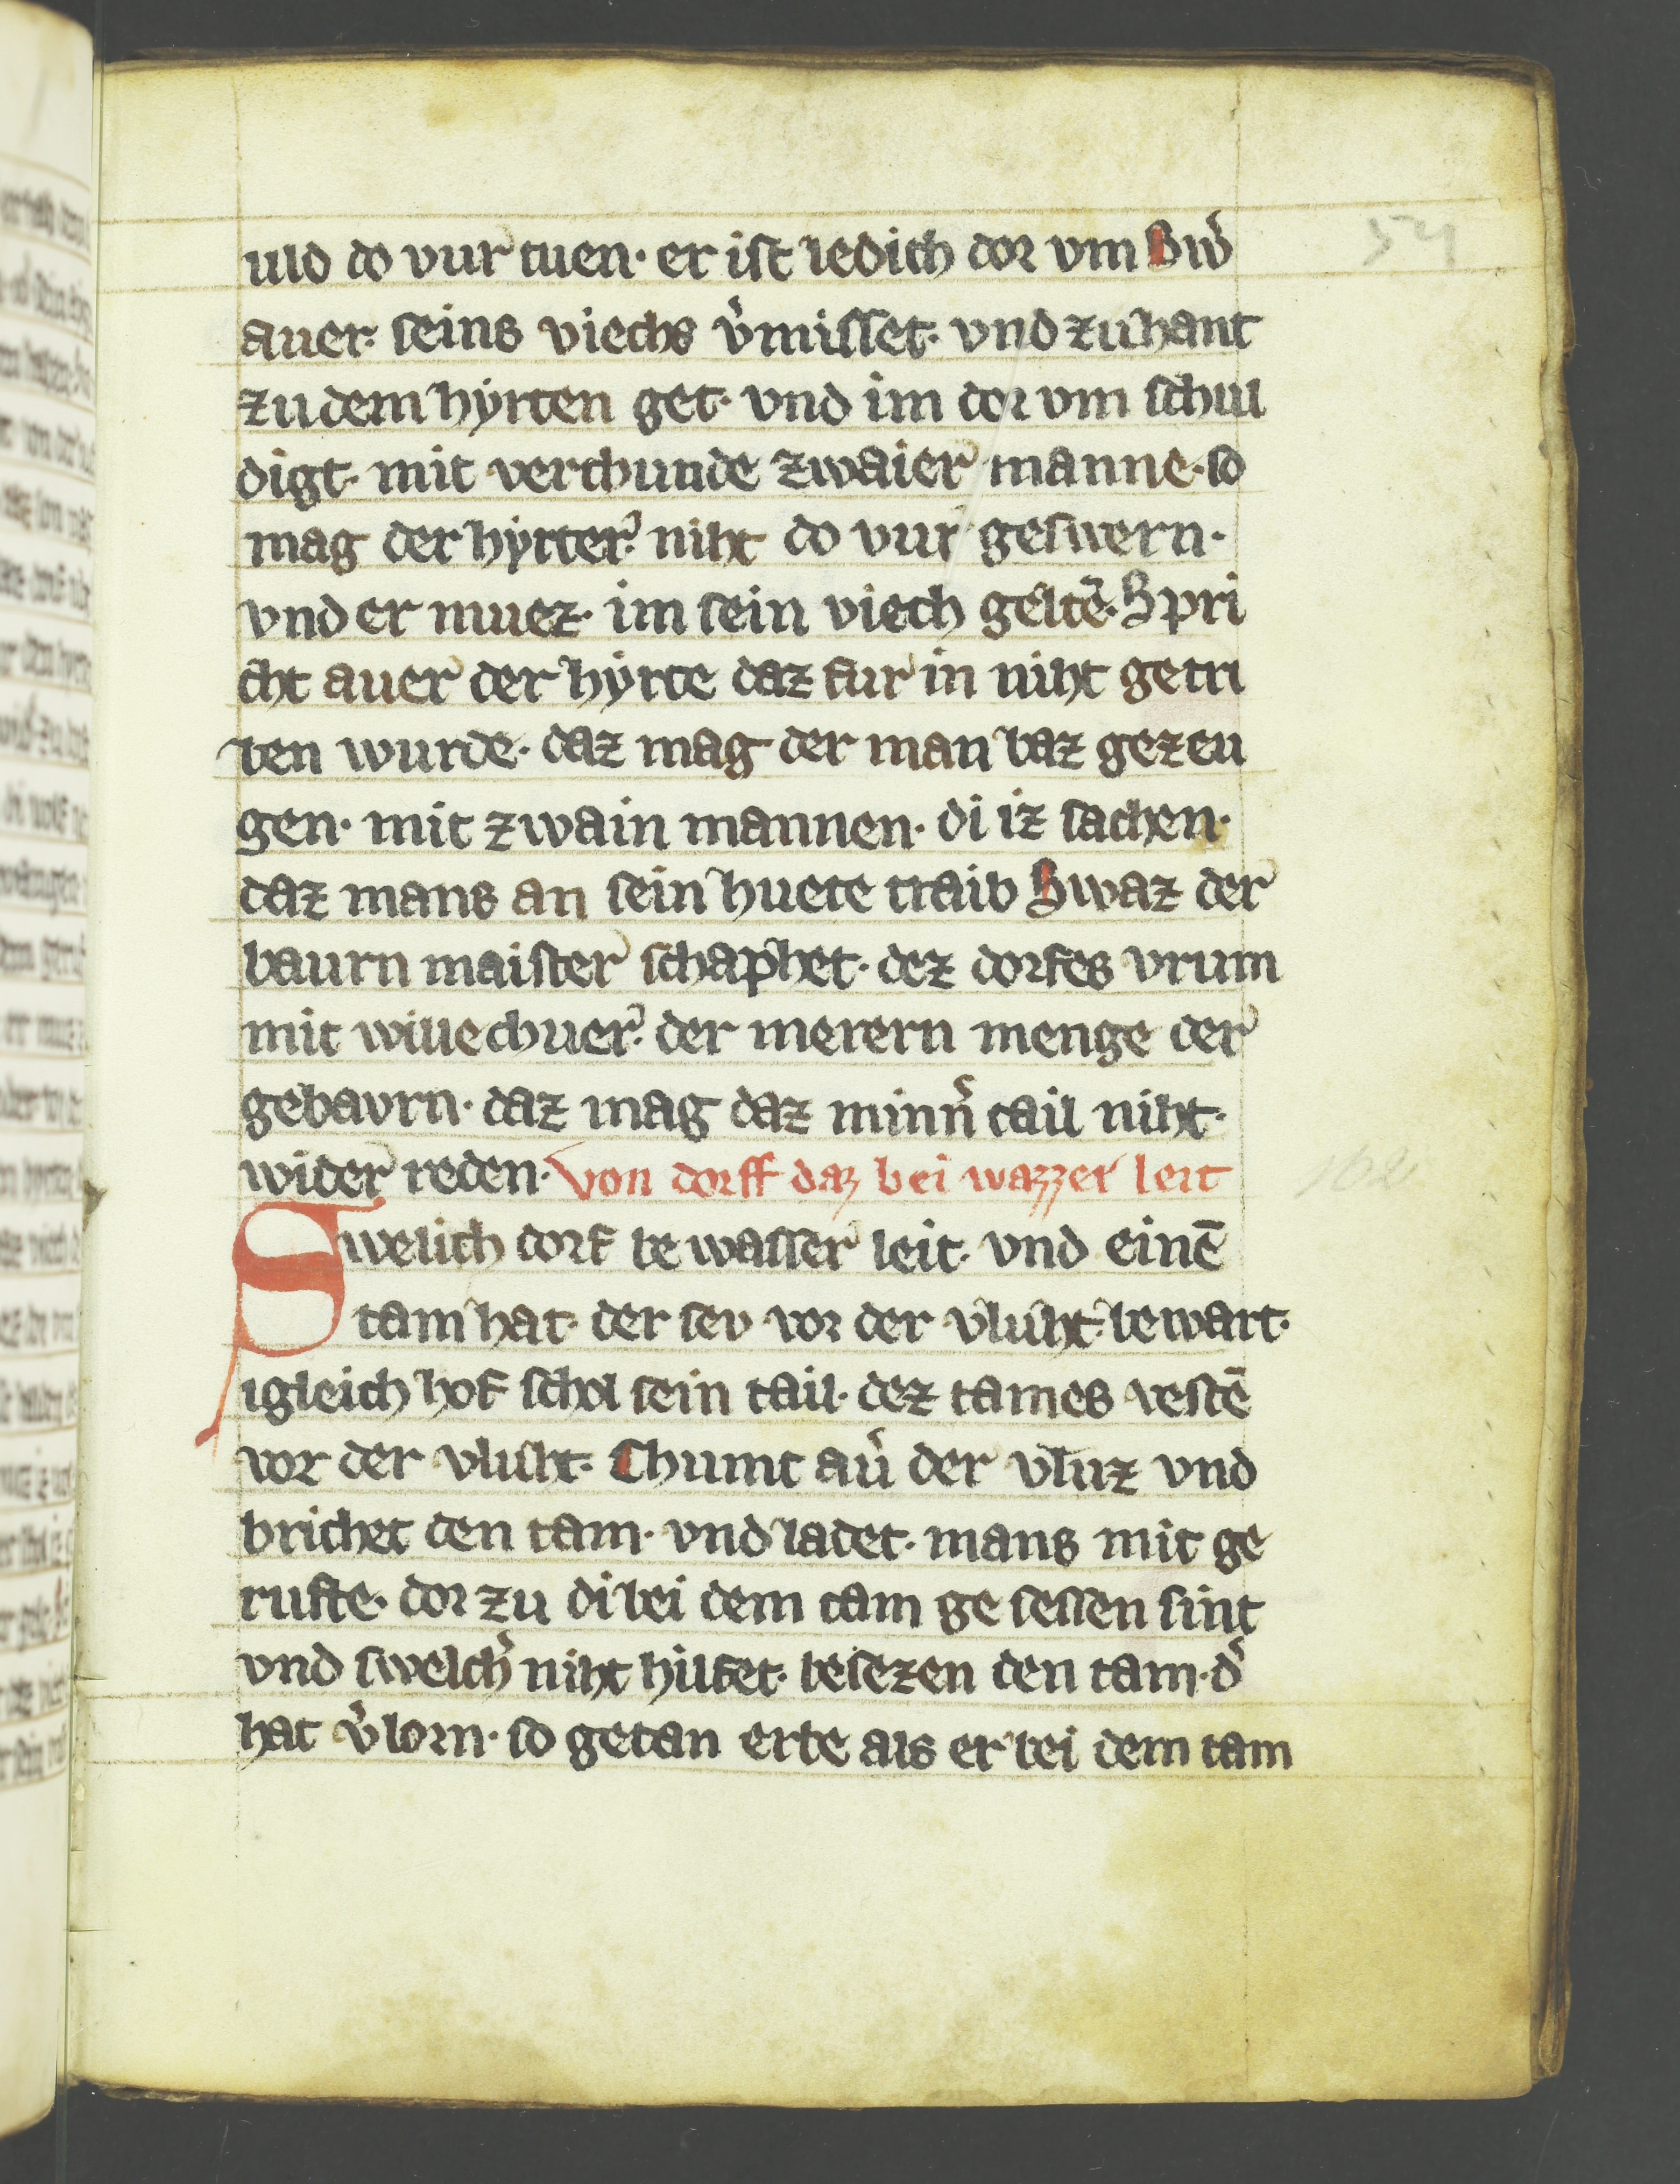 uld do vur tuen· er ist ledich dor vm Sw̉
auer· seins viechs v̉misset· vnd zu hant
zu dem hẏrten get· vnd im dor vm schul
digt· mit verchunde zwaier manne· so
mag der hẏrter· niht do vur geswern·
vnd er muez· im sein viech geltē· Spri
cht auer der hẏrte daz fur in niht getri
ben wurde· daz mag der man baz gezeu
gen· mit zwain mannen· di iz sachen·
daz mans an sein huete traib Swaz der
baurn maister schaphet· dez dorfes vrum
mit willechuer· der merern menge der
gebavrn· daz mag daz minn̉ tail niht·
wider reden· Von dorff daz bei wazzer leit
Swelich dorf be wasser leit· vnd einē
tam hat· der sev vor der vluht· bewart·
igleich hof schol sein tail· dez tames vestē
vor der vluht· Chumt aủ der vluz vnd
brichet den tam· vnd ladet· mans mit ge
rufte· dor zu di bei dem tam ge sessen sint
vnd swelch̉ niht hilfet· besezen den tam· d̉
hat v̉lorn· so getan erbe als er bei dem tam
54
162